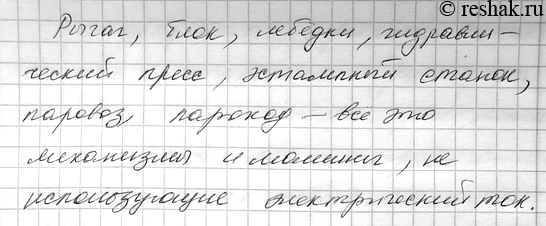 © reshak.ru
Рычаг, блок, лебёдки, гидравли-
ческий пресс, эстампный станок,
паровоз, пароход – всё это
механизмы и машины, не
использующие электрический ток.